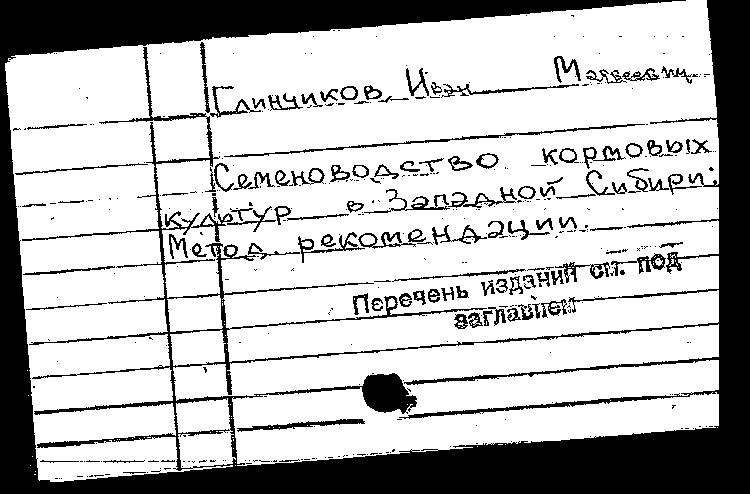 Глинчиков, Иван Матвеевич
Семеноводство кормовых
культур в Западной Сибири:
Метод. рекомендации.
Перечень изданий см. под
заглавием